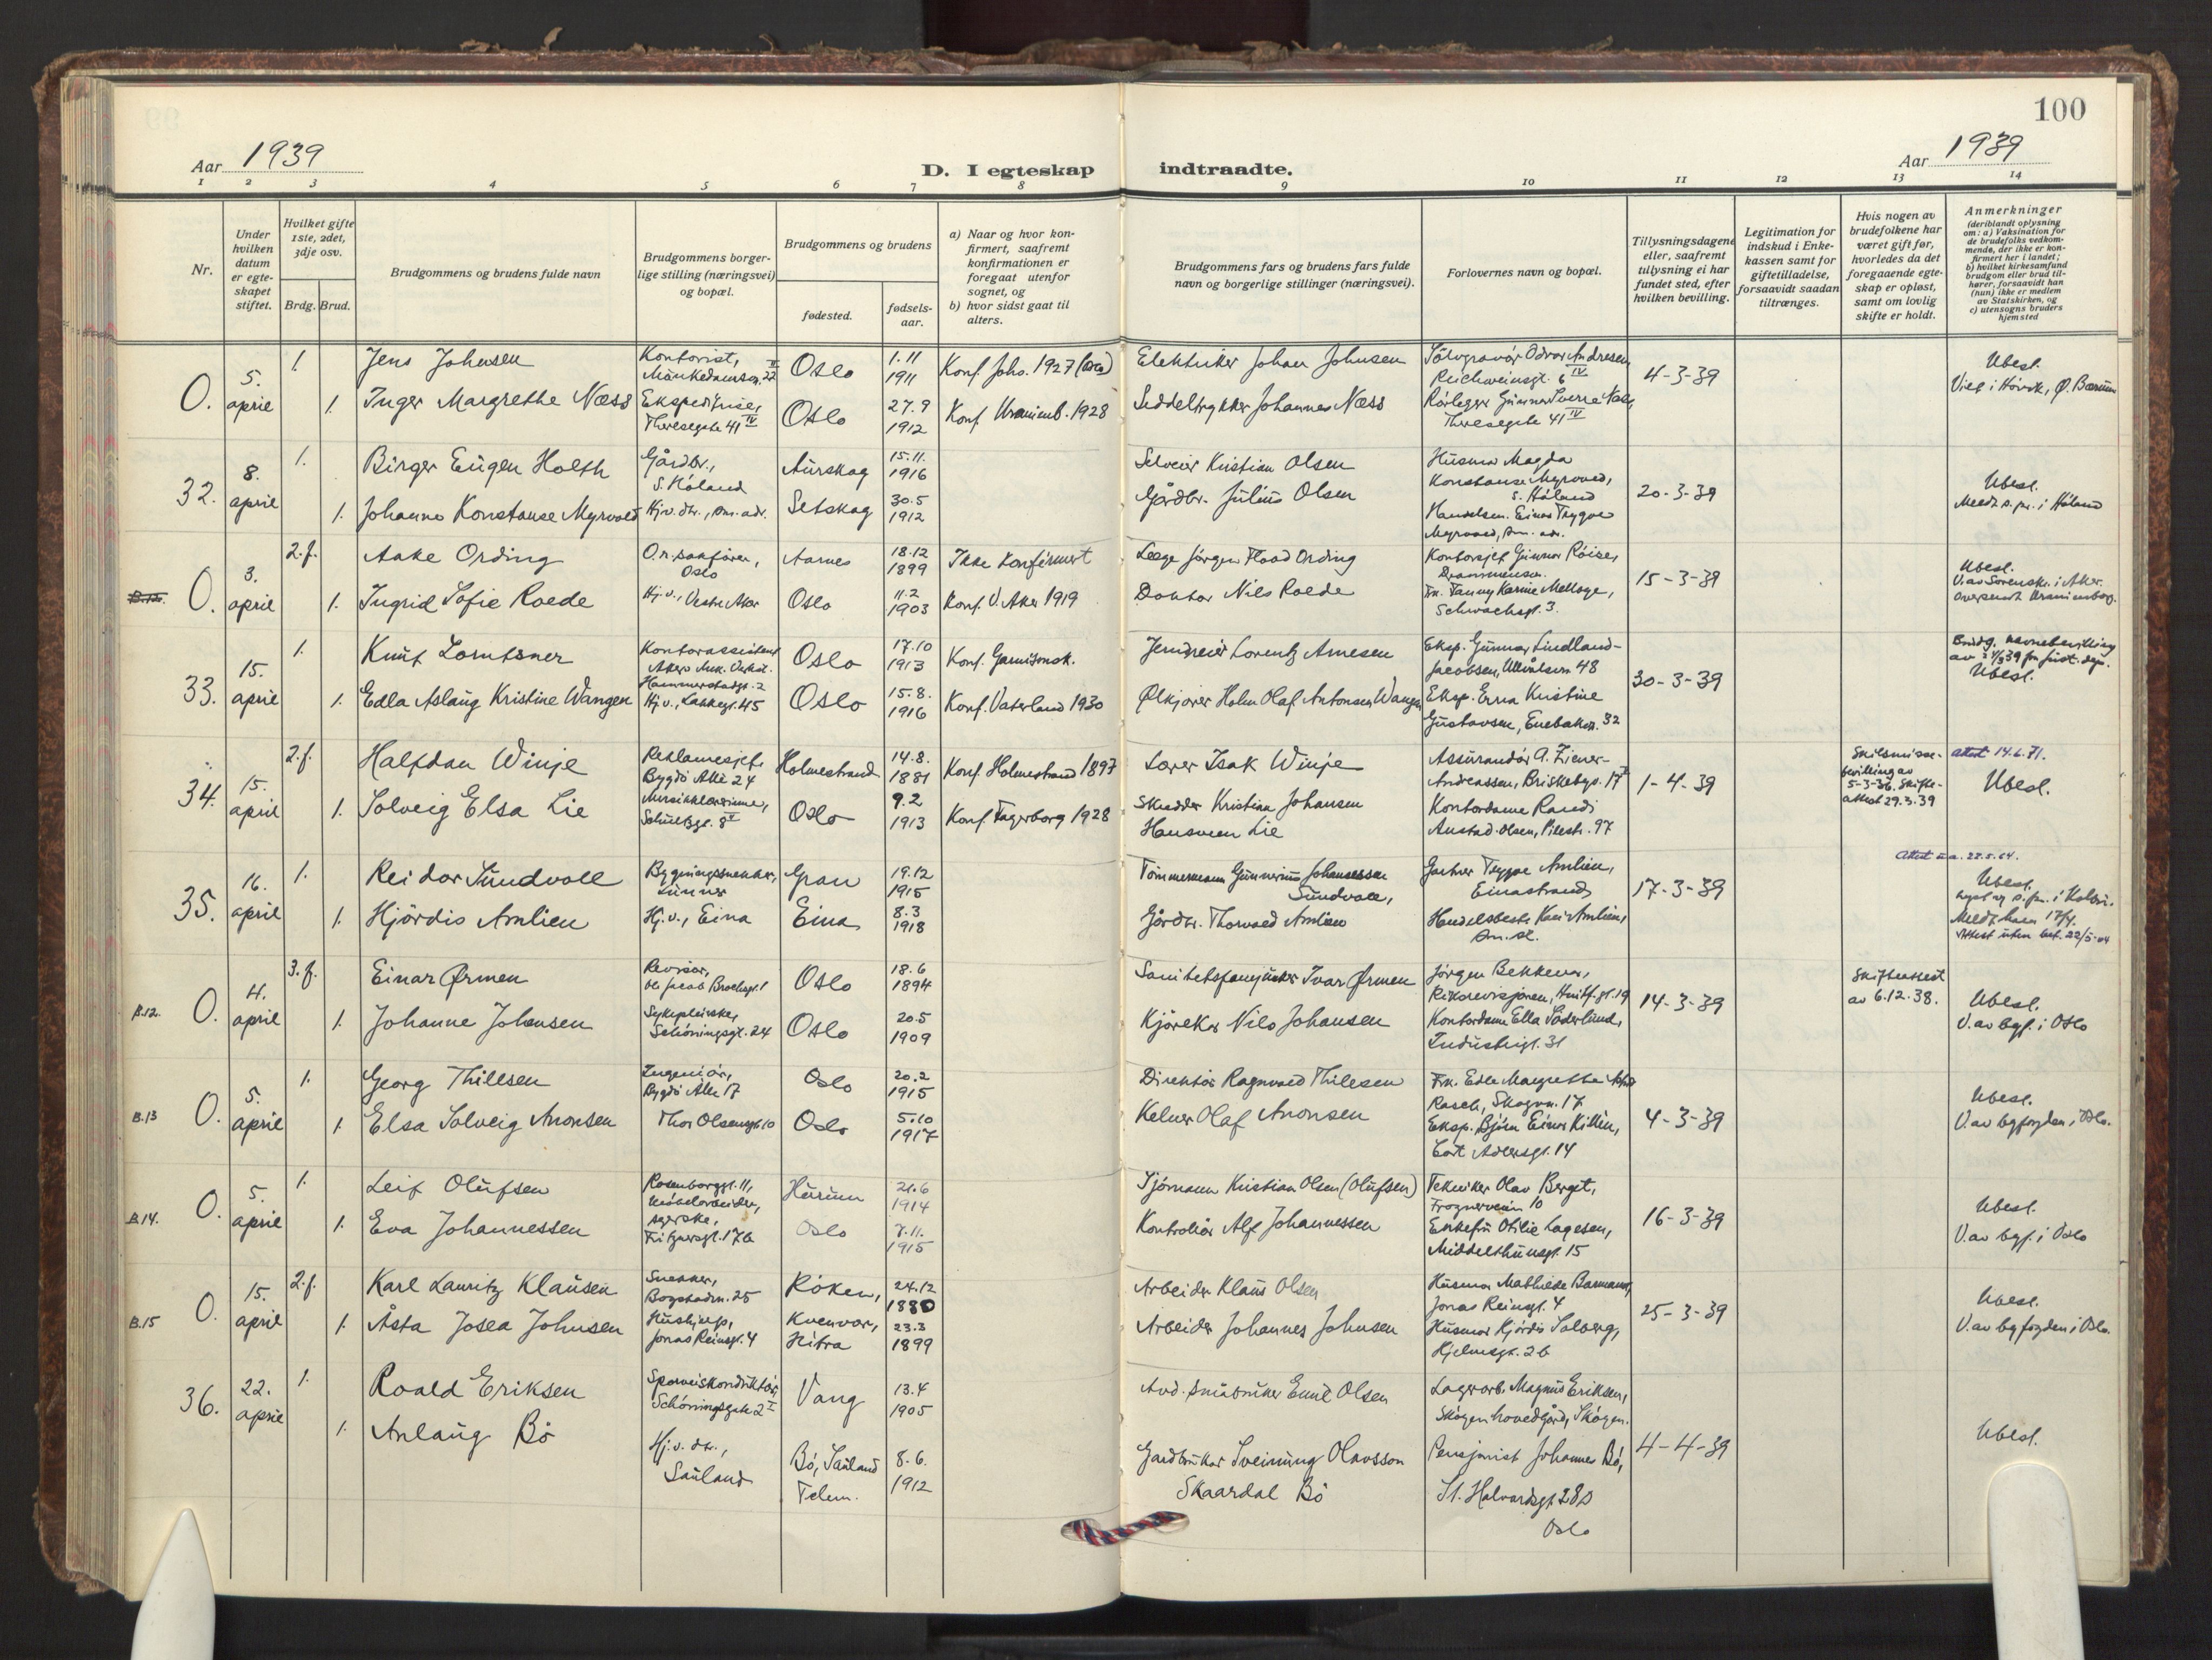 100
Aar 1939
D. I egteskap indtraadte.
Aar 1939
1 2 3 4 5 6 7 8 9 10 11 12 13 14
Nr.
Under hvilken datum er egteskapet stiftet.
Hvilket gifte 1ste, 2det, 3dje osv.
Brdg. Brud.
Brudgommens og brudens fulde navn
Brudgommens borgerlige stilling (næringsvei) og bopæl.
Brudgommens og brudens
fødested.
fødselsaar.
a) Naar og hvor konfirmert, saafremt konfirmationen er foregaat utenfor sognet, og
b) hvor sidst gaat til alters.
Brudgommens fars og brudens fars fulde navn og borgerlige stillinger (næringsvei).
Forlovernes navn og bopæl.
Tillysningsdagene eller, saafremt tillysning ei har fundet sted, efter hvilken bevilling.
Legitimation for indskud i Enkekassen samt for giftetilladelse, forsaavidt saadan tiltrænges.
Hvis nogen av brudefolkene har været gift før, hvorledes da det foregaaende egteskap er opløst, samt om lovlig skifte er holdt.
Anmerkninger
(deriblandt oplysning om: a) Vaksination for de brudefolks vedkommende, der ikke er konfirmert her i landet; b) hvilket kirkesamfund brudgom eller brud tilhører, forsaavidt han (hun) ikke er medlem av Statskirken, og c) utensogns bruders hjemsted
O. 5. april 1. Jens Johnsen Kontorist, Munkedamsv. 22 II Oslo 1.11 1911 Konf. Joh. 1927 Elektriker Johan Johnsen Sølvgravør Odvar Andresen, Reichweinsgt. 6 IV 4-3-39 Ubest.
1. Inger Margrethe Næss Ekspeditrise, Theresegate 41 IV Oslo 27.9 1912 Konf. Uranienb. 1928 Seddeltrykker Johannes Næss Rørlegger Gunnar Sverre Næss, Theresegate 41 IV Viet i Høvik, Ø. Bærum
32. 8. april 1. Birger Eugen Holth Gårdbr., S. Høland Aurskog 15.11. 1916 Selveier Kristian Olsen Husmor Magda Konstanse Myrvold, S. Høland 20-3-39 Ubest.
1. Johanne Konstanse Myrvold Hj.v. dtr., sm. adr. Setskog 30.5 1912 Gårdbr. Julius Olsen Handelsm. Einar Trygve Myrvold, sm. adr. Meldt s.pr. i Høland
B.12. O. 3. april 2.f. Aake Ording O.r.sakfører, Oslo Aarnes 18.12 1899 Ikke konfirmert Læge Jørgen Flood Ording Kontorsjef Gunnar Röise, Drammensv. 15-3-39 Ubest.
1. Ingrid Sofie Roede Hj.v., Vestre Aker Oslo 11.2 1903 Konf. V. Aker 1919 Doktor Nils Roede Frk. Fanny Karine Mellbye, Schwachsgt. 3. V. av Sorenskr. i Aker. Oversendt Uranienborg.
33. 15. april 1. Knut Lorntsner Kontorassistent Akers mek. Verksted. Hammerstadgt. 2 Oslo 17.10 1913 Konf. Garnisonsk. Jerndreier Lorentz Arnesen Eksp. Gunnar Lindland-Jacobsen, Ullevålsvn 48 30-3-39 Brudg. navnebevilling av 2/3 39 fra just. dep.
1. Edla Aslaug Kristine Wangen Hj.v., Lakkegt. 45 Oslo 15.8. 1916 Konf. Vaterland 1930 Ølkjører Holm Olaf Antonsen Wangen Eksp. Erna Kristine Gustavsen, Enebakkv. 32 Ubest.
34. 15. april 2.f. Halfdan Winje Reklamesjef, Bygdö Alle 24 Holmestrand 14.8. 1881 Konf. Holmestrand 1897 Lærer Isak Winje Assurandør A. Ziener-Andreassen, Briskebyv. 17 1-4-39 Skilsmissebevilling av 5-3-36. Skifteattest 29.3.39 Attest 14.6.71.
1. Solveig Elsa Lie Musikklærerinne, Schultzgt. 8 V Oslo 9.2 1913 Konf. Fagerborg 1928 Skredder Kristian Johansen Hansveen Lie Kontordame Randi Austad-Olsen, Pilestr. 97 Ubest.
35. 16. april 1. Reidar Sundvoll Bygningssnekker, Lunner Gran 19.12 1915 Tømmermann Gunnerius Johannessen Sundvoll, Gartner Trygve Amlien, Einastrand 17-3-39 Ubest.
1. Hjördis Amlien Hj.v., Eina Eina 8.3 1918 Gårdbr. Thorvald Amlien Handelsbest. Knut Amlien, sm. st. Meldt ham 17/4. Attest uten bet. 22/5-64
B.12. O. 4. april 3.f. Einar Ørmen Revisor, Jacob Brochsgt. 1 Oslo 18.6 1894 Sanitetsfanejunker Ivar Ørmen Jörgen Bekkevar, Riksrevisjonen, Huitf.gt. 19 14-3-39 Skifteattest av 6.12.38. Ubest.
1. Johanne Johansen Sykepleierske, Schöningsgt. 24 Oslo 20.5 1909 Kjörekar Nils Johansen Kontordame Ella Söderlund, Industrigt. 31 V. av bgf. i Oslo
B.13 O. 5. april 1. Georg Thillsen Ingeniör, Bygdö Alle 17 Oslo 20.2 1915 Direktör Ragnvald Thillesen Frk. Edle Margrethe Rasch, Skogvn. 17 4-3-39 Ubest.
1. Elsa Solveig Aronsen Thor Olsensgt 10 Oslo 5.10 1917 Kelner Olaf Aronsen Eksp. Björn Einar Killin, Cort Adelersgt. 14 V. av byfogden i Oslo.
B.14. O. 5. april 1. Leif Olufsen Rosenborggt. 11, Möbelarbeider, Hurum 21.6 1914 Sjömann Kristian Olsen (Olufsen) Tekniker Olav Berget, Frognerveien 10 16-3-39 Ubest.
1. Eva Johannessen syerske, Fritznersgt. 17b Oslo 7.11. 1915 Kontrollör Alf Johannessen Enkefru Otilie Lagesen, Middelthunsgt. 15 V. av bgf. i Oslo
B.15 O. 15. april 2.f. Karl Lauritz Klausen Snekker, Bogstadvn. 25 Röken, 24.12 1880 Arbeider Klaus Olsen Husmor Mathilde Barmann, Jonas Reinsgt. 4 25-3-39 Ubest.
1. Åsta Josea Johnsen Hushjelp, Jonas Reinsgt. 4 Kvenvær, Hitra 23.3 1899 Arbeider Johannes Johnsen Husmor Hjördis Solberg, Hjelmsgt. 2b V. av byfogden i Oslo.
36. 22. april 1. Roald Eriksen Sporveiskonduktör, Schöningsgate 2 I Vang 13.4 1905 Avd. småbruker Emil Olsen Lagerarb. Magnus Eriksen, Skögen hovedgård, Skögen. 4-4-39 Ubest.
1. Anlaug Bö Hj.v. dtr., Sauland Bö, Sauland Telem. 8.6. 1912 Gardbrukar Sveinung Olavsson Skaardal Bö Pensjonist Johannes Bö, St. Halvardsgt 28 D Oslo